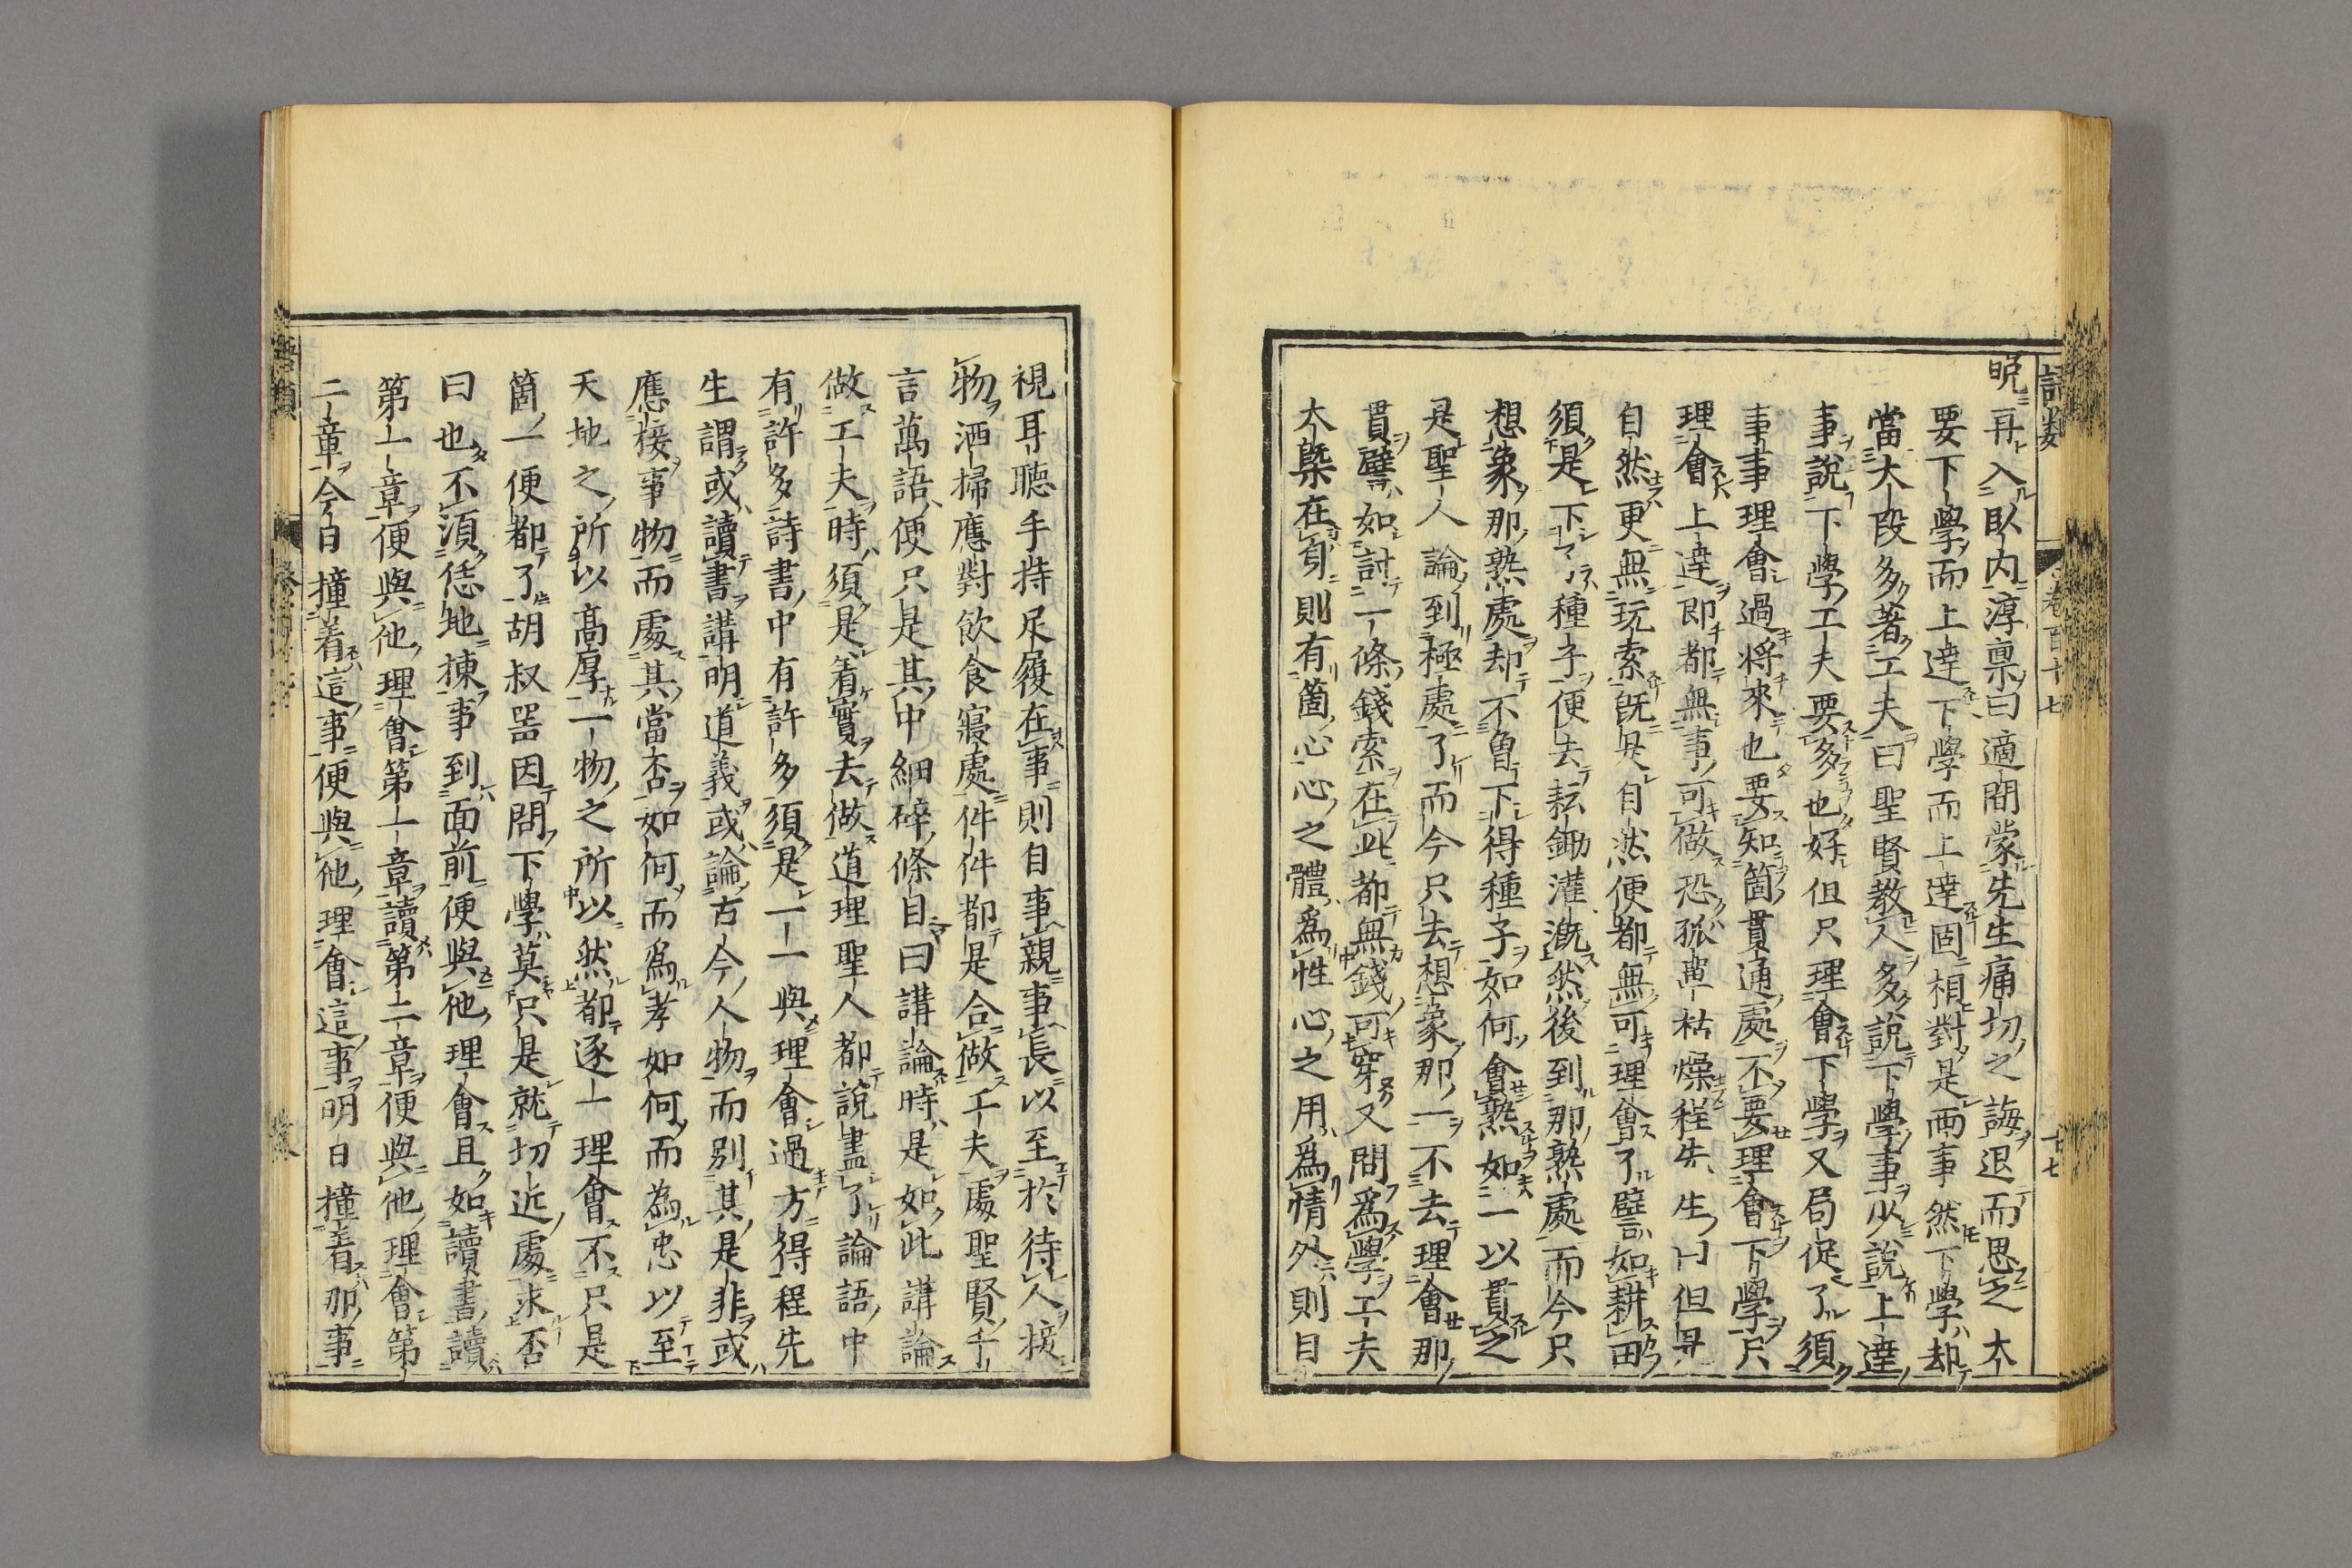 語類 卷百十七 十七
晩再入臥内淳禀曰適間蒙先生痛切之誨退而思之大
要下學而上達下學而上達固相對是兩事然下學却
當大段多著工夫曰聖賢教人多說下學事少說上達
事說下學工夫要多也好但只理會下學又局促了須
事事理會過將來也要知箇貫通處不要理會下學只
理會上達即都無事可做恐孤單枯燥程先生曰但是
自然更無玩索既是自然便都無可理會了譬如耕田
須是下了種子便去耘鋤灌漑然後到那熟處而今只
想象那熟處却不曾下得種子如何會熟如一以貫之
是聖人論到極處了而今只去想象那一不去理會那
貫譬如討一條錢索在此都無錢可穿又問爲學工夫
大槩在身則有箇心心之體爲性心之用爲情外則目
視耳聽手持足履在事則自事親事長以至於待人接
物洒掃應對飲食寢處件件都是合做工夫處聖賢千
言萬語便只是其中細碎條目曰講論時是如此講論
做工夫時須是着實去做道理聖人都說盡了論語中
有許多詩書中有許多須是一一與理會過方得程先
生謂或讀書講明道義或論古今人物而別其是非或
應接事物而處其當否如何而爲孝如何而為忠以至
天地之所以高厚一物之所以然都逐一理會不只是
箇一便都了胡叔器因問下學莫只是就切近處求否
曰也不須恁地揀事到面前便與他理會且如讀書讀
第一章便與他理會第一章讀第二章便與他理會第
二章今日撞着這事便與他理會這事明日撞着那事